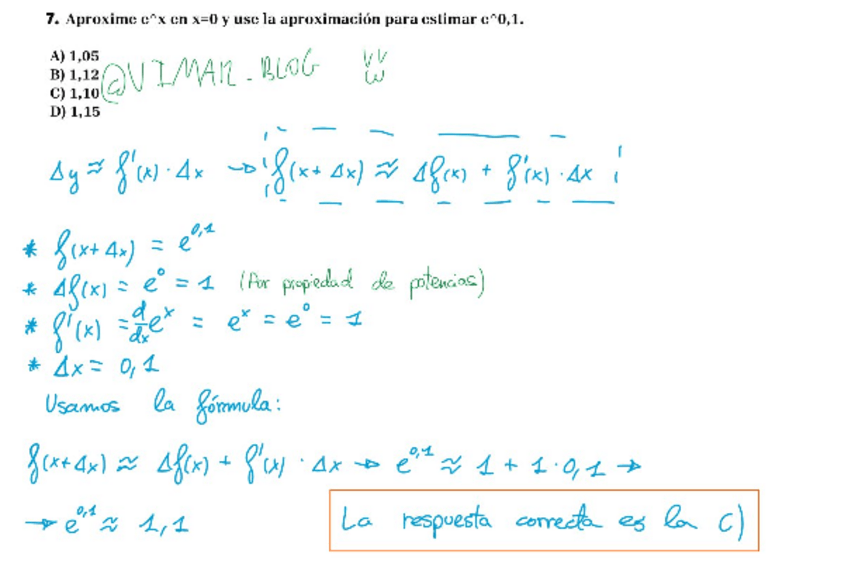 7. Aproxime e^x en x=0 y use la aproximación para estimar e^0,1.
A) 1,05
B) 1,12
C) 1,10
D) 1,15
@VIMAR_BLOG
Δy ≈ f'(x) · Δx → f(x+Δx) ≈ Δf(x) + f'(x) · Δx
* f(x+Δx) = e^0,1
* Δf(x) = e^0 = 1 (Por propiedad de potencias)
* f'(x) = d/dx e^x = e^x = e^0 = 1
* Δx = 0,1
Usamos la fórmula:
f(x+Δx) ≈ Δf(x) + f'(x) · Δx → e^0,1 ≈ 1 + 1·0,1 →
→ e^0,1 ≈ 1,1
La respuesta correcta es la C)